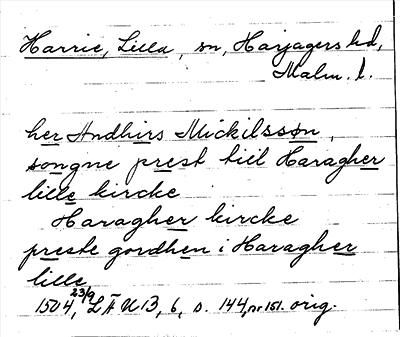 Harrie, Lilla, sn, Harjagers hd,
Malm. l.
her Andhirs Mickilssøn,
songne prest till Haragher
lille kircke
Haragher kircke
preste gordhen i Haragher
lille
1504, 23/9, LÄU 13, 6, s. 144, nr 151. orig.